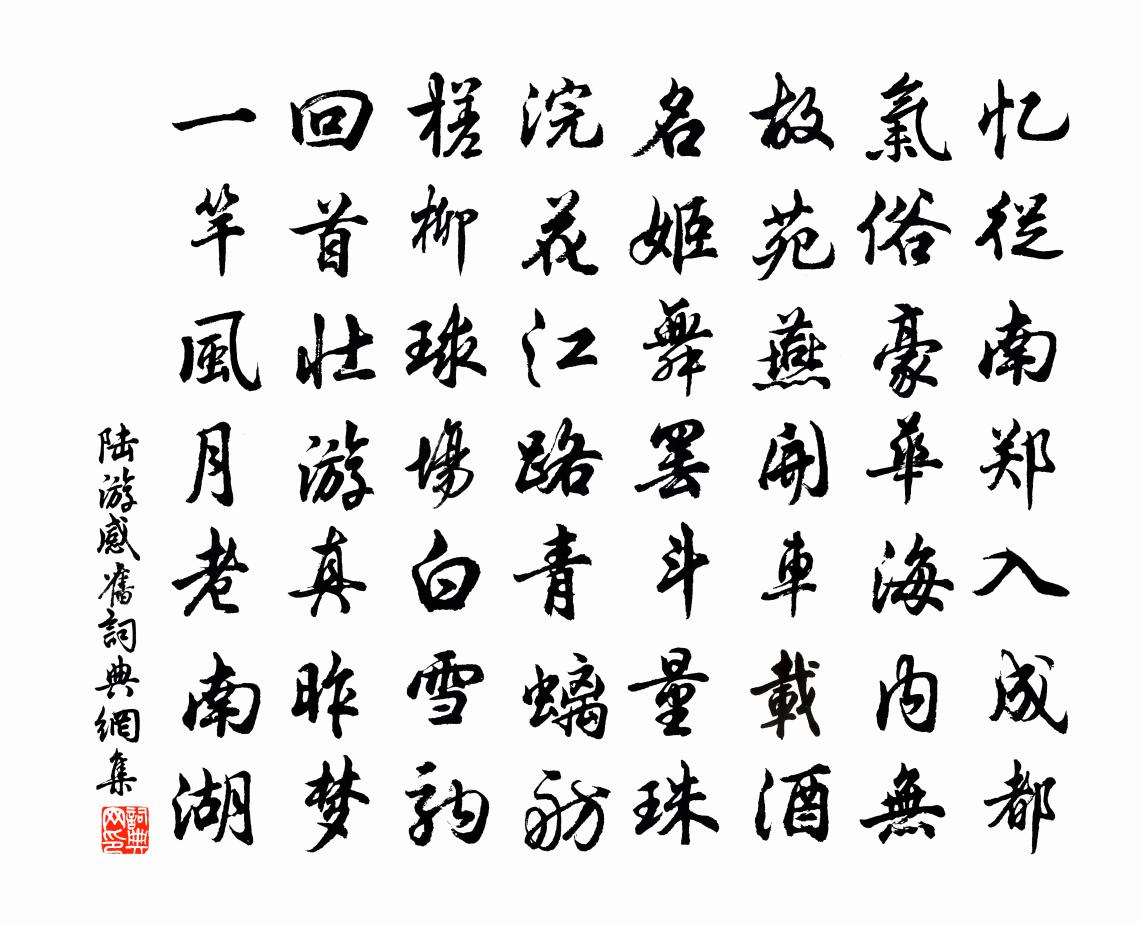 忆從南郑入成都
氣俗豪華海内無
故苑燕開車載酒
名姬舞罢斗量珠
浣花江路青螭舫
槎柳球場白雪駒
回首壮游真昨梦
一竿風月老南湖
陆游感舊詞典網集
詞典网印